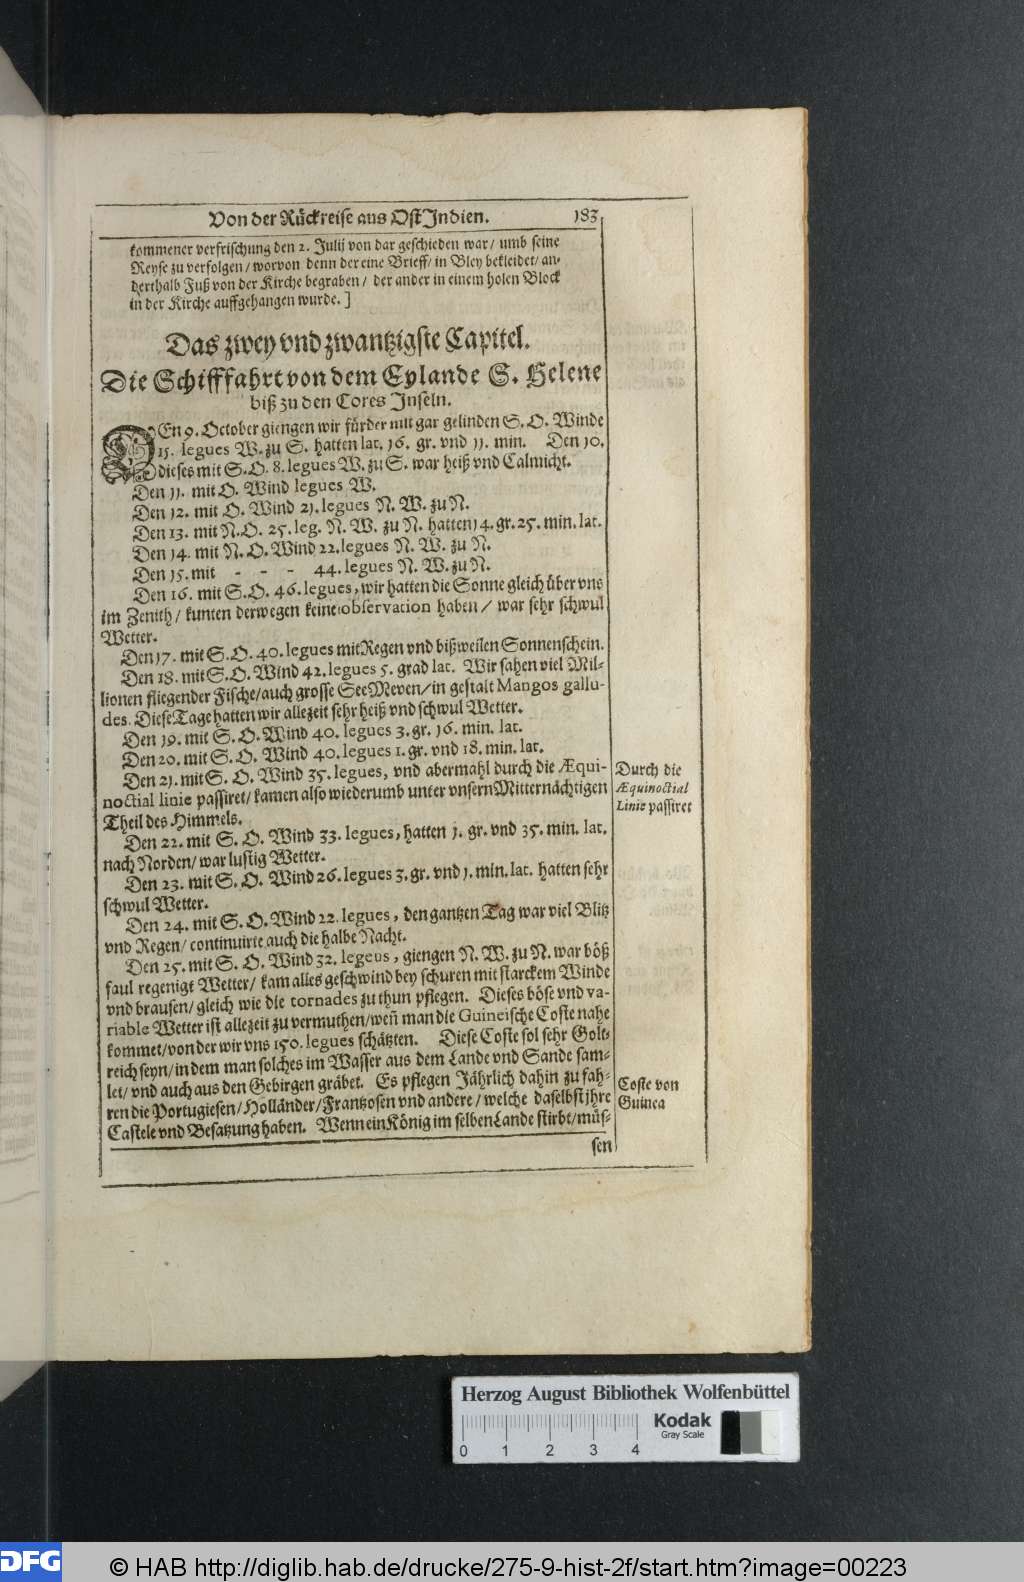 Von der Rückreise aus Ost Indien. 183
kommener verfrischung den 2. Julij von dar geschieden war / umb seine
Reyse zu verfolgen / worvon denn der eine Brieff / in Bley bekleidet / an-
derthalb Fuß von der Kirche begraben / der ander in einem holen Block
in der Kirche auffgehangen wurde. ]
Das zwey vnd zwantzigste Capitel.
Die Schifffahrt von dem Eylande S. Helene
biß zu den Cores Inseln.
DEn 9. October giengen wir fürder mit gar gelinden S. O. Winde
15. legues W. zu S. hatten lat. 16. gr. vnd 11. min. Den 10.
dieses mit S. O. 8. legues W. zu S. war heiß vnd Calmicht.
Den 11. mit O. Wind legues W.
Den 12. mit O. Wind 21. legues N. W. zu N.
Den 13. mit N. O. 25. leg. N. W. zu N. hatten 14. gr. 25. min. lat.
Den 14. mit N. O. Wind 22. legues N. W. zu N.
Den 15. mit - - - 44. legues N. W. zu N.
Den 16. mit S. O. 46. legues, wir hatten die Sonne gleich über vns
im Zenith / kunten derwegen keine observation haben / war sehr schwul
Wetter.
Den 17. mit S. O. 40. legues mit Regen vnd bißweilen Sonnenschein.
Den 18. mit S. O. Wind 42. legues 5. grad lat. Wir sahen viel Mil-
lionen fliegender Fische / auch grosse See Meven / in gestalt Mangos gallu-
des. Diese Tage hatten wir allezeit sehr heiß vnd schwul Wetter.
Den 19. mit S. O. Wind 40. legues 3. gr. 16. min. lat.
Den 20. mit S. O. Wind 40. legues 1. gr. vnd 18. min. lat.
Den 21. mit S. O. Wind 35. legues, vnd abermahl durch die Æqui-
noctial linie passiret / kamen also wiederumb unter vnsern Mitternächtigen
Theil des Himmels.
Durch die
Æquinoctial
Linie passiret
Den 22. mit S. O. Wind 33. legues, hatten 1. gr. vnd 35. min. lat.
nach Norden / war lustig Wetter.
Den 23. mit S. O. Wind 26. legues 3. gr. vnd 1. min. lat. hatten sehr
schwul Wetter.
Den 24. mit S. O. Wind 22. legues, den gantzen Tag war viel Blitz
vnd Regen / continuirte auch die halbe Nacht.
Den 25. mit S. O. Wind 32. legeus, giengen N. W. zu N. war böß
faul regenigt Wetter / kam alles geschwind bey schuren mit starckem Winde
vnd brausen / gleich wie die tornades zu thun pflegen. Dieses böse vnd va-
riable Wetter ist allezeit zu vermuthen / weñ man die Guineische Coste nahe
kommet / von der wir vns 150. legues schätzten. Diese Coste sol sehr Golt-
reich seyn / in dem man solches im Wasser aus dem Lande vnd Sande sam-
let / vnd auch aus den Gebirgen gräbet. Es pflegen Jährlich dahin zu fah-
ren die Portugiesen / Holländer / Frantzosen vnd andere / welche daselbst jhre
Castele vnd Besatzung haben. Wenn ein König im selben Lande stirbt / müs-
Coste von
Guinea
sen
Herzog August Bibliothek Wolfenbüttel
0 1 2 3 4
Kodak
Gray Scale
DFG
© HAB http://diglib.hab.de/drucke/275-9-hist-2f/start.htm?image=00223